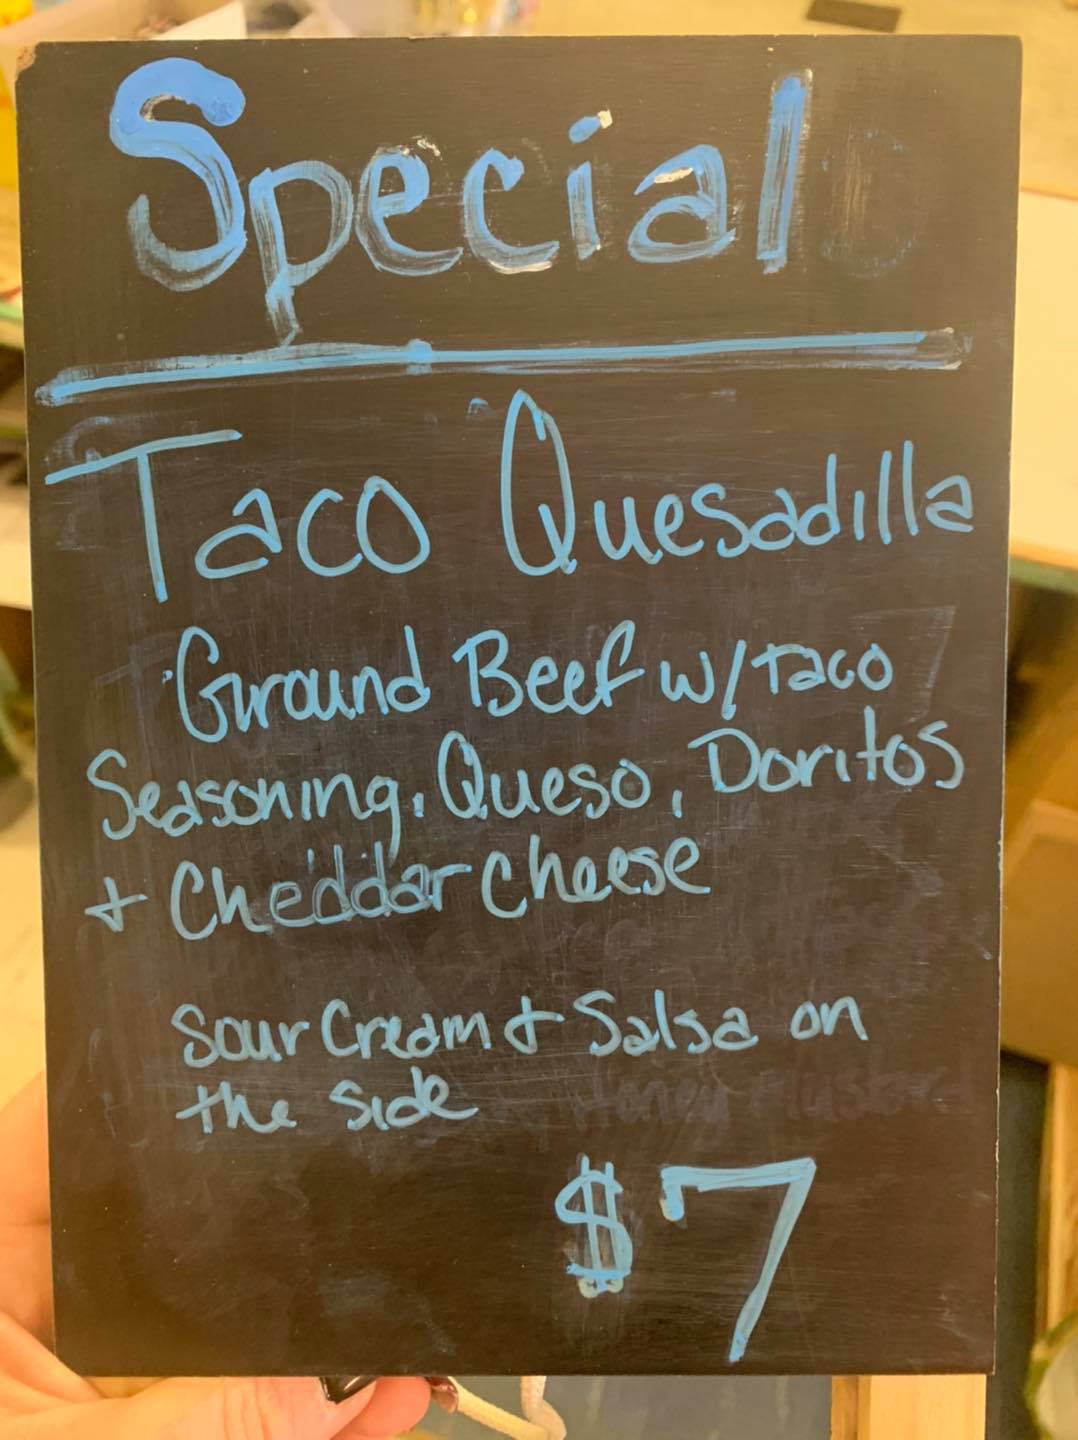 Special
Taco Quesadilla
Ground Beef w/Taco
Seasoning, Queso, Doritos
+ Cheddar Cheese
Sour Cream + Salsa on
the side
Honey Mustard
$7